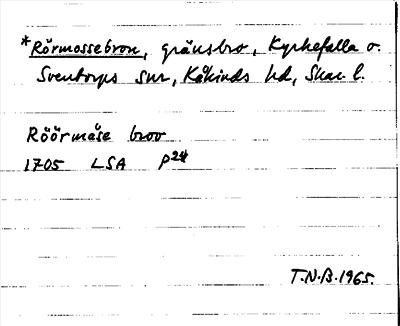 *Rörmossebron, gränsbro, Kyrkefalla o.
Sventorps snr, Kåkinds hd, Skar. l.
Röörmåse broo
1705 LSA P24
T.N.B. 1965.